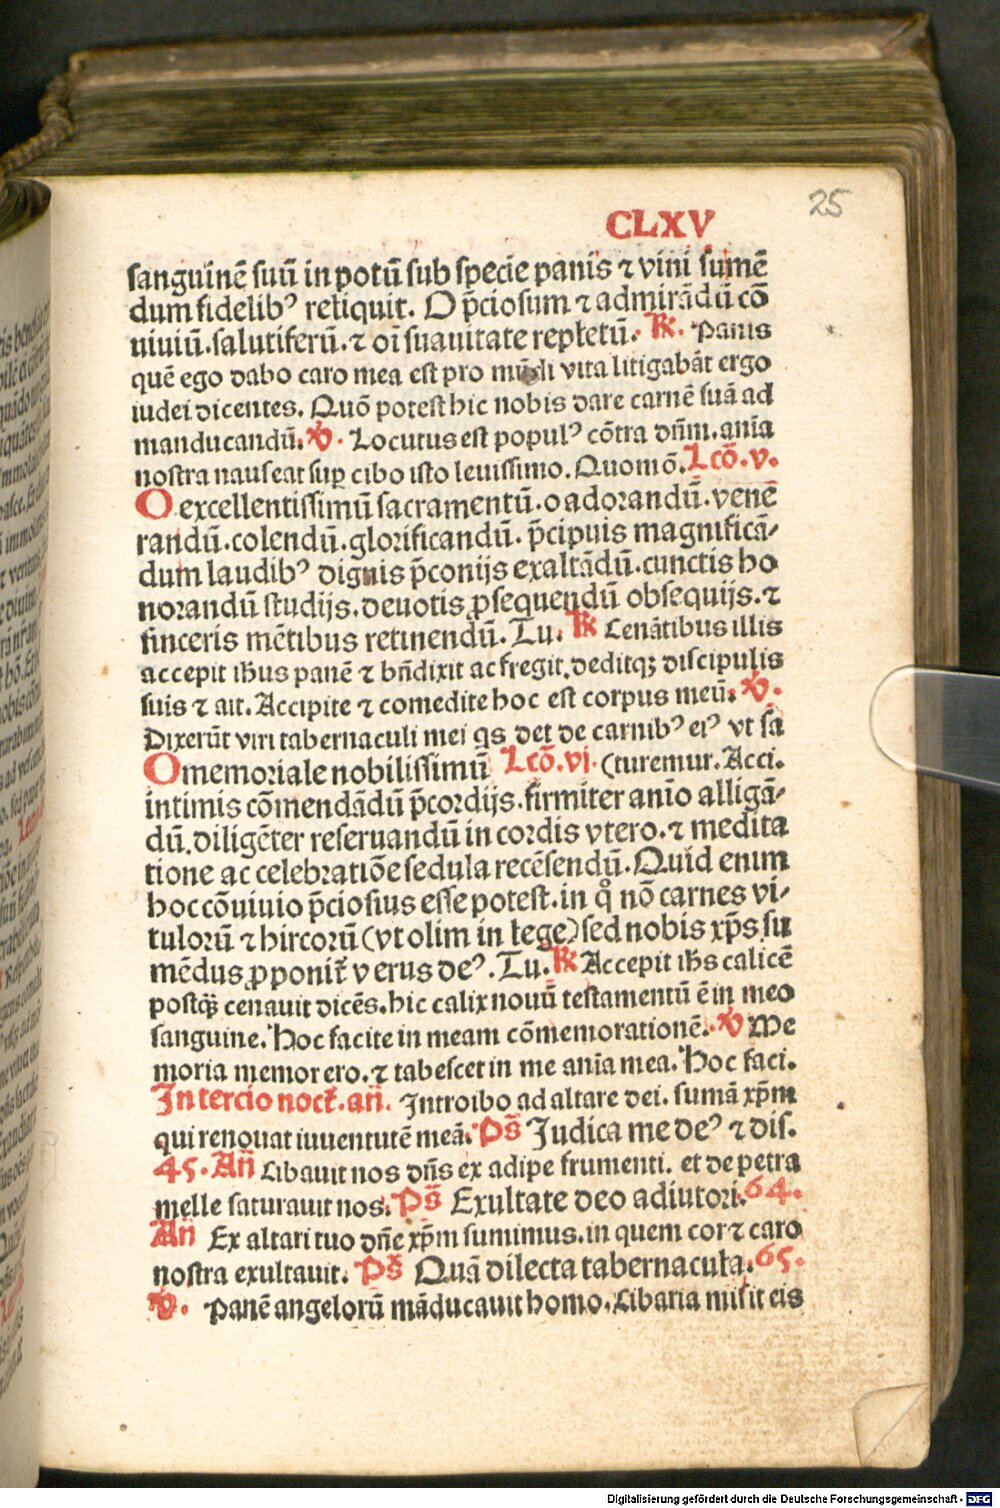 25
CLXV
sanguinē suū in potū sub specie panis ⁊ vini sumē
dum fidelibꝰ reliquit. O p̄ciosum ⁊ admirādū cō
uiuiū.salutiferū.⁊ oī suauitate repletū. R̄. Panis
quē ego dabo caro mea est pro mūdi vita litigabāt ergo
iudei dicentes. Quō potest hic nobis dare carnē suā ad
manducandū. V̄. Locutus est populꝰ cōtra dn̄m.anīa
nostra nauseat suꝑ cibo isto leuissimo. Quomō. Lcō.v.
O excellentissimū sacramentū.o adorandū.venē
randū.colendū.glorificandū. p̄cipuis magnificā-
dum laudibꝰ dignis p̄conijs exaltādū.cunctis ho
norandū studijs.deuotis ꝓsequendū obsequijs.⁊
sinceris mētibus retinendū. Tu. R̄ Cenātibus illis
accepit ih̄us panē ⁊ bn̄dixit ac fregit.deditqꝫ discipulis
suis ⁊ ait. Accipite ⁊ comedite hoc est corpus meū. V̄.
Dixerūt viri tabernaculi mei qs det de carnibꝰ eiꝰ vt sa
O memoriale nobilissimū Lcō.vi. (turemur. Acci.
intimis cōmendādū p̄cordijs.firmiter anīo alligā-
dū.diligēter reseruandū in cordis vtero.⁊ medita
tione ac celebratiōe sedula recēsendū. Quid enim
hoc cōuiuio p̄ciosius esse potest.in qͦ nō carnes vi-
tulorū ⁊ hircorū (vt olim in lege) sed nobis xp̄s su
mēdus ꝓponit̄ verus deꝰ. Tu. R̄ Accepit ih̄s calicē
postqꝫ̄ cenauit dicēs.hic calix nouū testamentū ē in meo
sanguine. Hoc facite in meam cōmemorationē. V̄ Me
moria memor ero.⁊ tabescet in me anīa mea. Hoc faci.
In tercio noct̄.an̄. Introibo ad altare dei. sumā xp̄m
qui renouat iuuentutē meā. Ps̄ Iudica me deꝰ ⁊ dis.
45. An̄ Cibauit nos dn̄s ex adipe frumenti. et de petra
melle saturauit nos. Ps̄ Exultate deo adiutori. 64.
An̄ Ex altari tuo dn̄e xp̄m sumimus.in quem cor ⁊ caro
nostra exultauit. Ps̄ Quā dilecta tabernacula. 65.
V̄. Panē angelorū māducauit homo. Cibaria misit eis
Digitalisierung gefördert durch die Deutsche Forschungsgemeinschaft - DFG